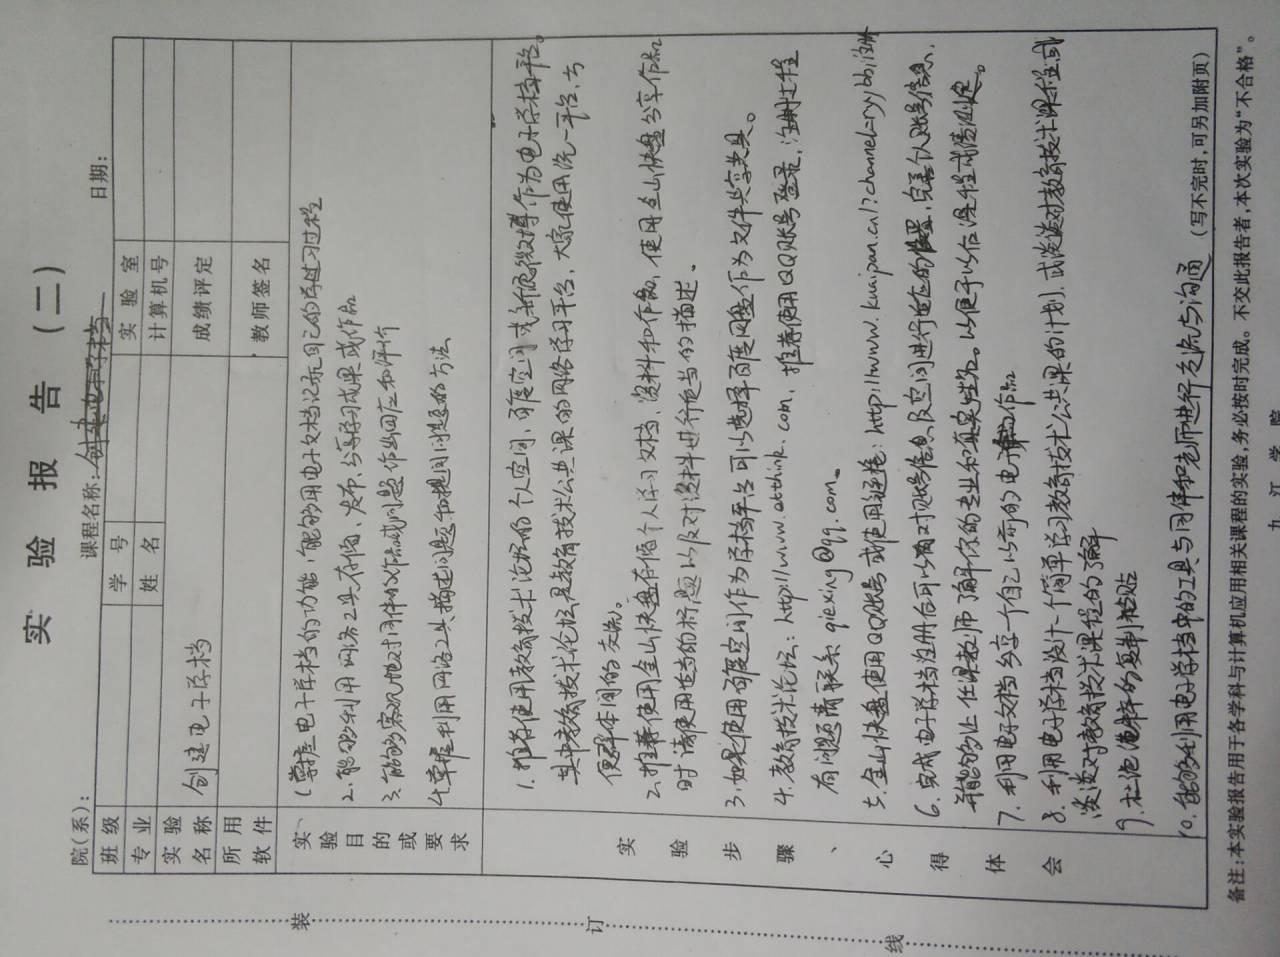 实 验 报 告 （二）
院(系)： 课程名称：创建电子学档 日期：
班级 学号 实验室
专业 姓名 计算机号
实验名称 创建电子学档 成绩评定
所用软件 教师签名
实验目的或要求
1.掌握电子学档的功能，能够用电子文档记录自己的学习过程
2.能够利用网络工具存储、发布、分享学习成果或作品
3.能够客观地对同伴的作品或问题作出回应和评价
4.掌握利用网络工具描述问题和提问问题的方法
实验步骤、心得体会
1.推荐使用教育技术论坛的个人空间，百度空间或新浪微博，作为电子学档平台。
其中教育技术论坛是教育技术公共课的网络学习平台，大家使用统一平台，方
便群体间的交流。
2.推荐使用金山快盘存储个人学习文档、资料和作品，使用金山快盘分享作品
时请使用适当的标题以及对资料进行适当的描述。
3.如果使用百度空间作为学档平台可以选择百度网盘作为文件共享夹具。
4.教育技术论坛：http://www.etthink.com，推荐使用QQ账号登录，注册过程
有问题请联系 qiexing@qq.com。
5.金山快盘使用QQ账号或使用链接：http://www.kuaipan.cn/?channel=ryybb，注册
6.完成电子学档注册后可以通过对账号信息及空间进行适应的设置，完善个人账号信息，
并能够让任课教师了解你的专业和真实姓名。以便于以后课程或绩测定。
7.利用电子文档分享一个自己以前的电子作品
8.利用电子学档设计一个简单学习教育技术公共课的计划，或谈谈对教育技术课程或
谈谈对教育技术课程的了解
9.杜绝
的复制粘贴
10.能够利用电子学档中的工具与同伴和老师进行交流与沟通
（写不完时，可另加附页）
备注：本实验报告用于各学科与计算机应用相关课程的实验，务必按时完成。不交此报告者，本次实验为“不合格”。
装
订
线
九 江 学 院